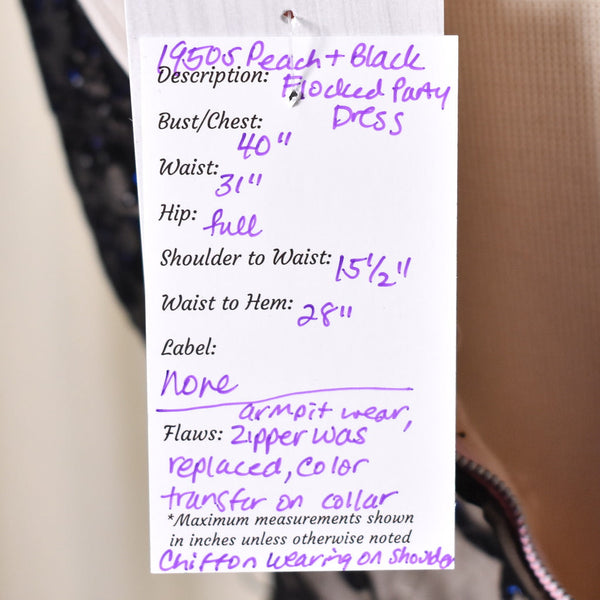 1950s Peach + Black
Description: Flocked Party
Dress
Bust/Chest: 40"
Waist: 31"
Hip: full
Shoulder to Waist: 15 1/2"
Waist to Hem: 28"
Label:
None
armpit wear,
Flaws: Zipper was
replaced, color
transfer on collar
*Maximum measurements shown
in inches unless otherwise noted
Chiffon wearing on shoulder